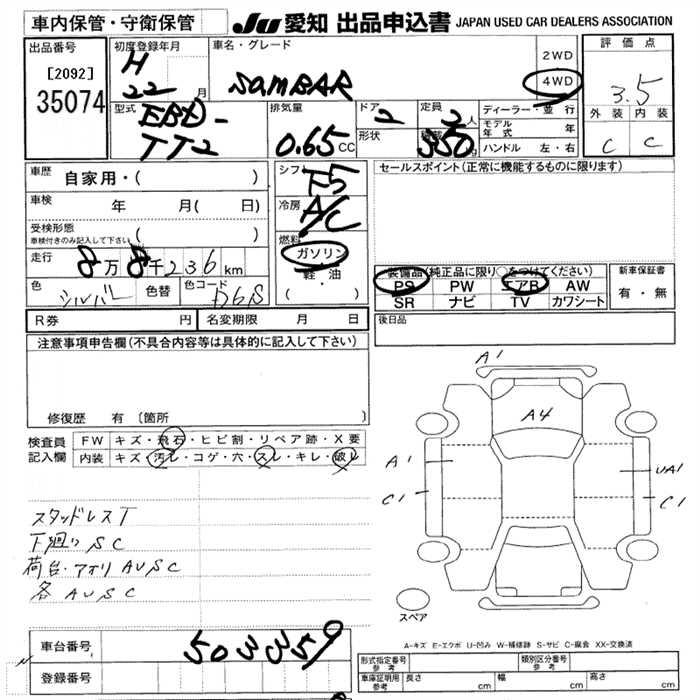 車内保管・守衛保管
JU 愛知 出品申込書 JAPAN USED CAR DEALERS ASSOCIATION
出品番号
[2092]
35074
初度登録年月
H
22 月
車名・グレード
SAMBAR
2WD
4WD
評価点
3.5
外装 内装
C C
型式
EBD-
TT2
排気量
0.65 CC
ドア
2
形状
定員
2 人
積載
350 kg
ディーラー・並行
モデル年式 年
ハンドル 左・右
車歴 自家用・( )
車検 年 月( 日)
受検形態
車検付きのみ記入して下さい ( )
走行 8万8千236km
色 シルバー 色替 色コード D6S
シフト
F5
冷房
A/C
燃料
ガソリン
軽・油
(・)
セールスポイント(正常に機能するものに限ります)
装備品(純正品に限り○をつけてください)
PS PW エアB AW
SR ナビ TV カワシート
新車保証書
有・無
後日品
R券 円 名変期限 月 日
注意事項申告欄(不具合内容等は具体的に記入して下さい)
修復歴 有〔箇所
検査員記入欄
FW キズ・飛石・ヒビ割・リペア跡・X要
内装 キズ・汚れ・コゲ・穴・スレ・キレ・破レ
スタッドレスT
下廻り SC
荷台・アオリ AUSC
各 AUSC
A1
A4
A1
UA1
C1
C1
スペア
A-キズ E-エクボ U-凹み W-補修跡 S-サビ C-腐食 XX-交換済
車台番号 503359
登録番号
形式指定番号 参考
類別区分番号 参考
車庫証明用 参考 長さ cm 幅 cm 高さ cm